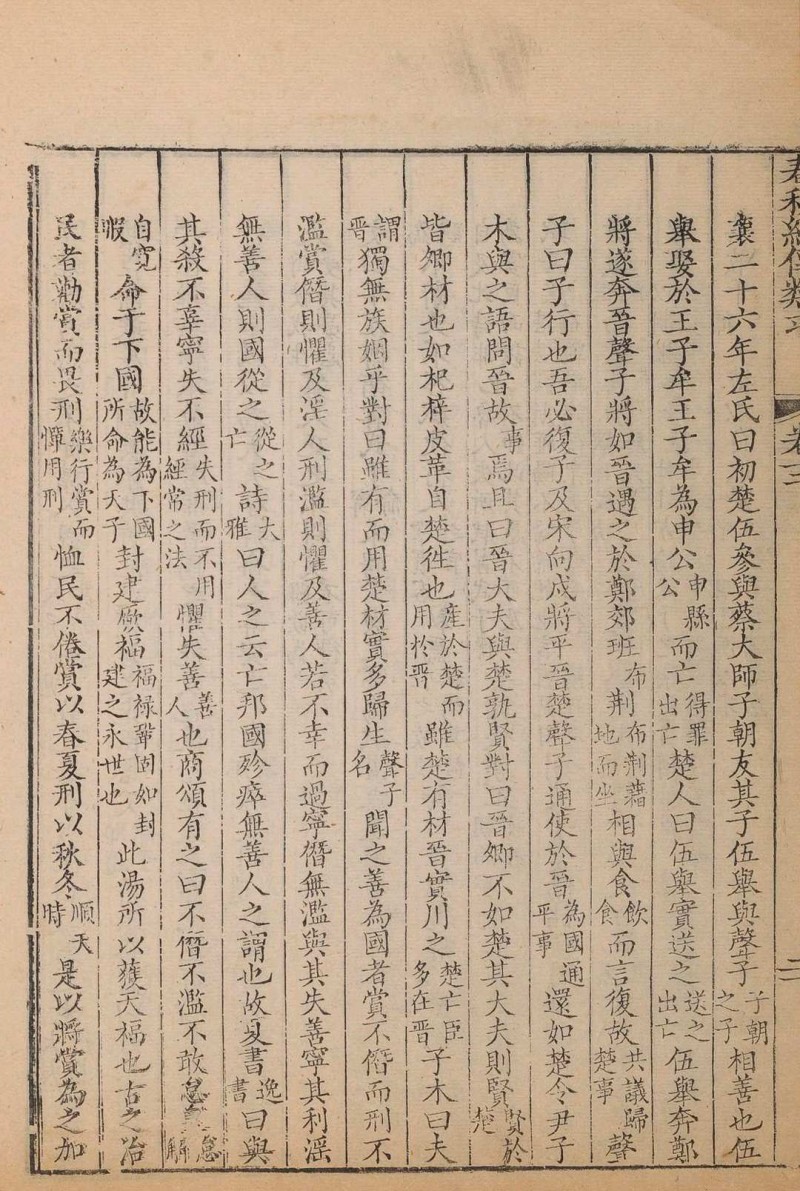 襄二十六年左氏曰初楚伍參與蔡大師子朝友其子伍舉與聲子子朝之子相善也伍
舉娶於王子牟王子牟為申公申縣公而亡得罪出亡楚人曰伍舉實送之送之出亡伍舉奔鄭
將遂奔晉聲子將如晉遇之於鄭郊班布荆布荆藉地而坐相與食飲食而言復故共議歸楚事聲
子曰子行也吾必復子及宋向戌將平晉楚聲子通使於晉為國通平事還如楚令尹子
木與之語問晉故事焉且曰晉大夫與楚孰賢對曰晉卿不如楚其大夫則賢賢於楚
皆卿材也如杞梓皮革自楚徃也產於楚而用扵晉雖楚有材晉實川之楚亡臣多在晉子木曰夫
謂晉獨無族姻乎對曰雖有而用楚材實多歸生聲子名聞之善為國者賞不僭而刑不
濫賞僭則懼及淫人刑濫則懼及善人若不幸而過寧僭無濫與其失善寧其利滛
無善人則國從之從之亡詩大雅曰人之云亡邦國殄瘁無善人之謂也故夏書逸書曰與
其殺不辜寧失不經失刑而不用經常之法懼失善善人也商頌有之曰不僭不濫不敢怠怠解
自寬暇命于下國故能為下國所命為天子封建厥福福禄鞏固如封建之永世也此湯所以獲天福也古之治
民者勸賞而畏刑樂行賞而憚用刑恤民不倦賞以春夏刑以秋冬順天時是以將賞為之加